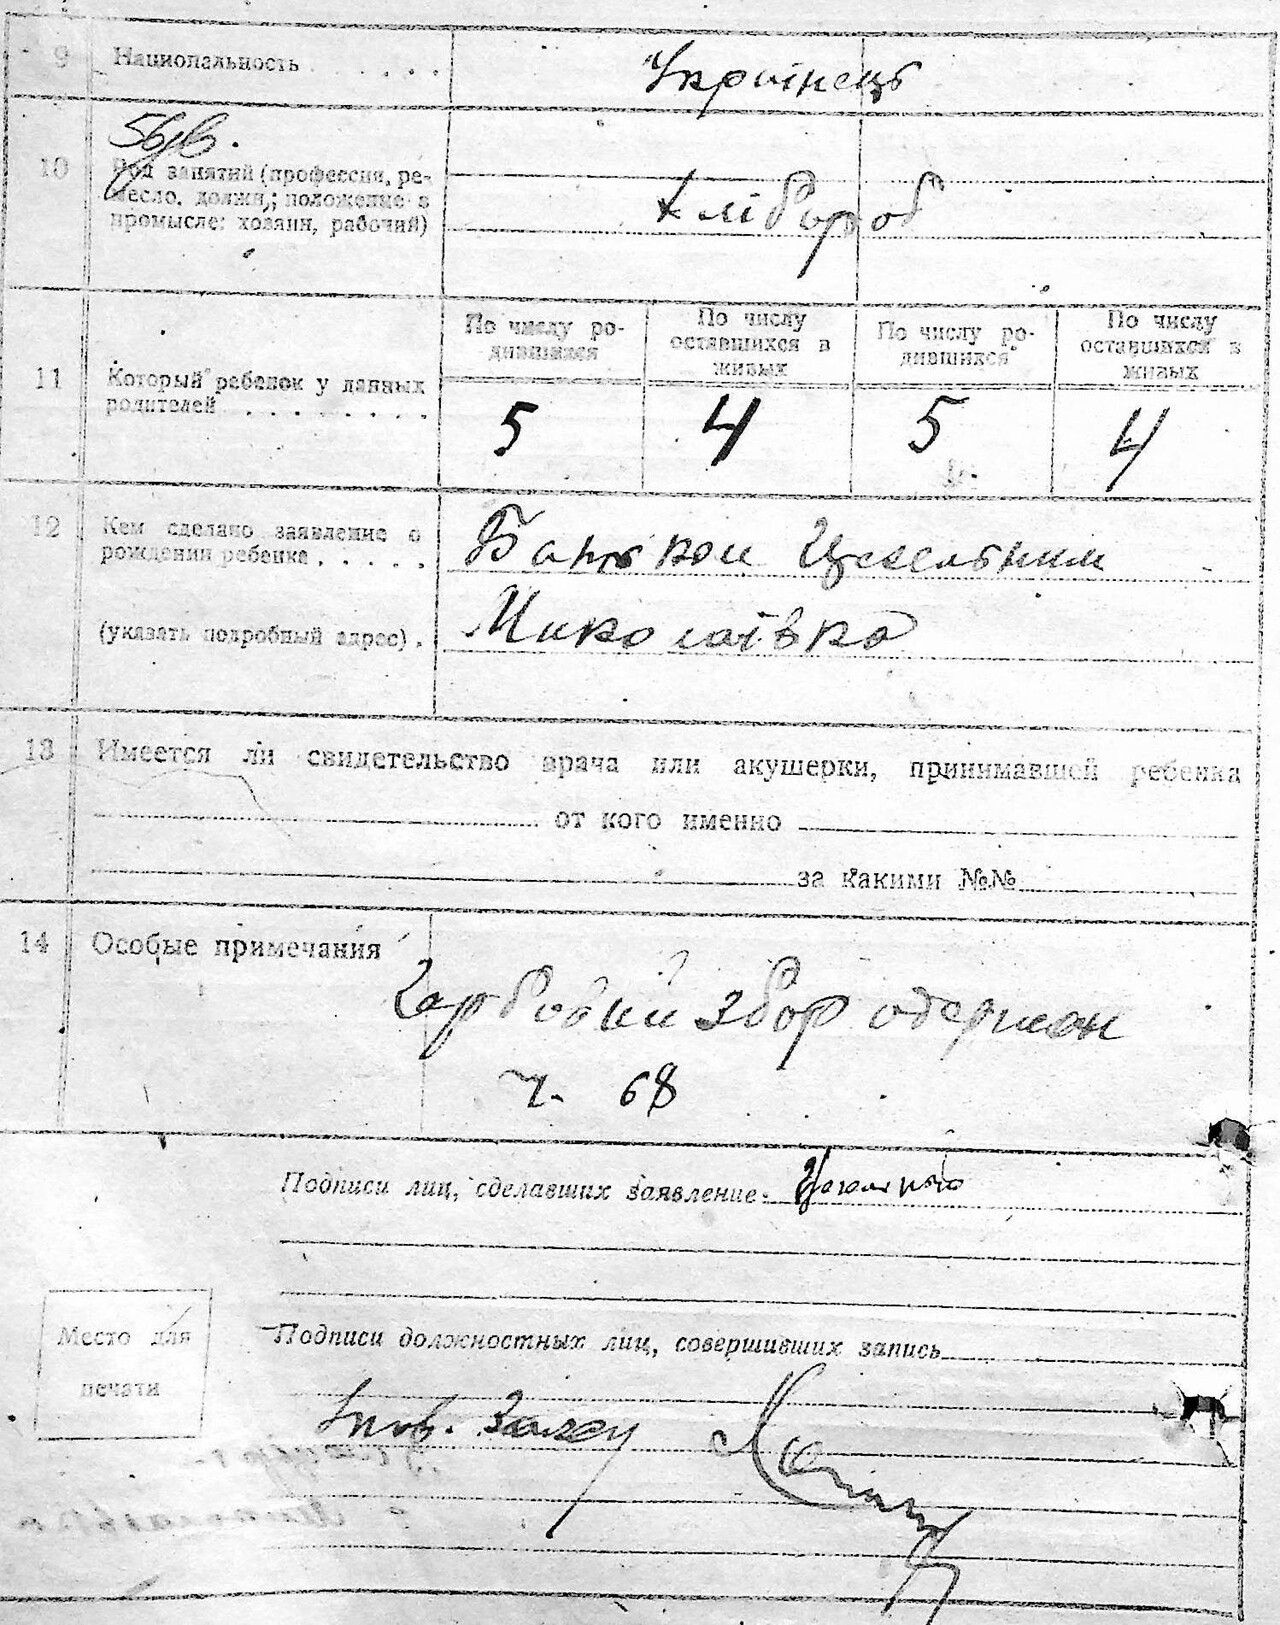 9 Национальность Українець
10 Род занятий (профессия, ре-
месло, должн.; положение в
промысле: хозяин, рабочий)
Хлібороб
По числу ро-
дившихся
По числу
оставшихся в
живых
По числу ро-
дившихся
По числу
оставшихся в
живых
11 Который ребенок у данных
родителей
5 4 5 4
12 Кем сделано заявление о
рождении ребенка
Батьком
(указать подробный адрес). Миколаївка
13 Имеется ли свидетельство врача или акушерки, принимавшей ребенка
от кого именно
за какими №№
14 Особые примечания
збор одержан
ч. 68
Подписи лиц, сделавших заявление:
Место для
печати
Подписи должностных лиц, совершивших запись